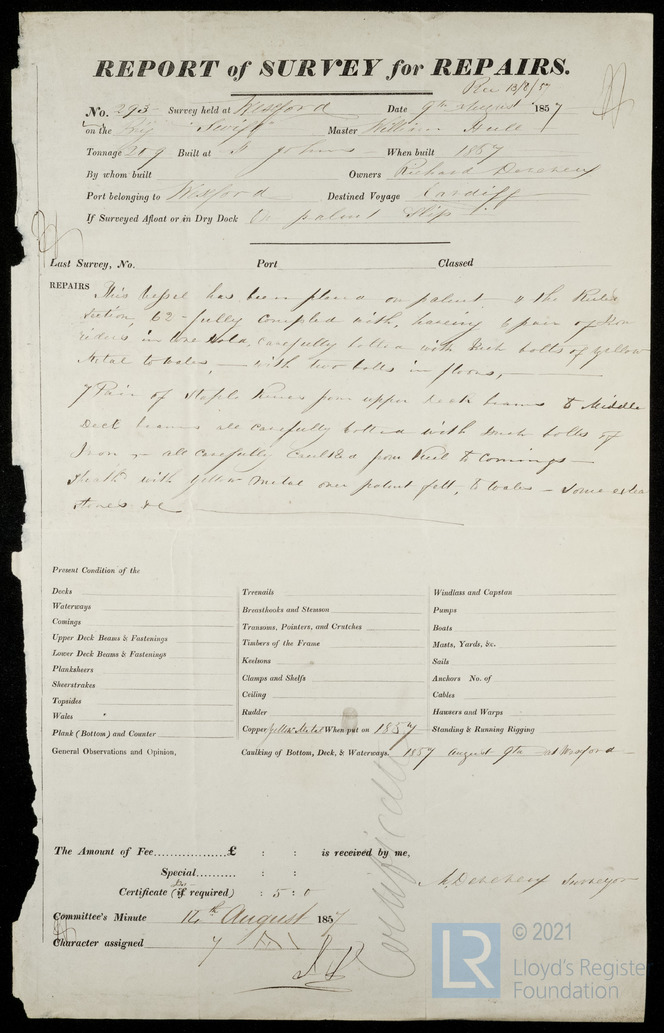 REPORT of SURVEY for REPAIRS.
Rec 13/8/57
No. 293 Survey held at Wexford Date 9th August 1857
on the Brig "Swift" Master William
Tonnage 209 Built at St Johns When built 1857
By whom built Owners Richard Devereux
Port belonging to Wexford Destined Voyage Cardiff
If Surveyed Afloat or in Dry Dock On patent Slip
Last Survey, No. Port Classed
REPAIRS This Vessel has been placed on patent & the Rules
Section 62 fully complied with, having 6 pair of Iron
riders in the Hold, carefully bolted with Inch bolts of yellow
Metal to wales, with two bolts in floors,
7 Pair of Staple Knees from upper deck beams to Middle
Deck beams all carefully bolted with Inch bolts of
Iron & all carefully Caulked from Keel to Comings
Sheathd with yellow Metal over patent felt, to wales - some extra
Stores &c
Present Condition of the
Decks
Waterways
Comings
Upper Deck Beams & Fastenings
Lower Deck Beams & Fastenings
Planksheers
Sheerstrakes
Topsides
Wales
Plank (Bottom) and Counter
General Observations and Opinion,
Treenails
Breasthooks and Stemson
Transoms, Pointers, and Crutches
Timbers of the Frame
Keelsons
Clamps and Shelfs
Ceiling
Rudder
Copper yellow Metal When put on 1857
Caulking of Bottom, Deck, & Waterways. 1857 August 9th at Wexford
Windlass and Capstan
Pumps
Boats
Masts, Yards, &c.
Sails
Anchors No. of
Cables
Hawsers and Warps
Standing & Running Rigging
The Amount of Fee................£ : : is received by me,
Special.......... : :
Certificate (if required) : 5 : 0
Devereux Surveyor
Certificate
Committee's Minute 14th August 1857
Character assigned 7
© 2021
LR
Lloyd's Register
Foundation